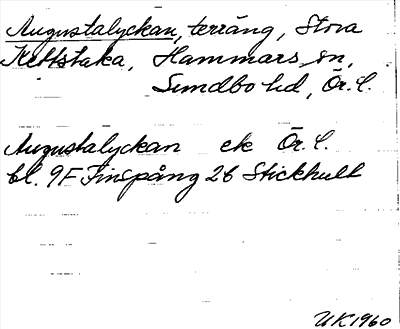 Augustalyckan, terräng, Stora
Kettstaka, Hammars sn,
Sundbo hd, Ör. l.
Augustalyckan ek Ör. l.
bl. 9F Finspång 26 Stickhult
UK 1960